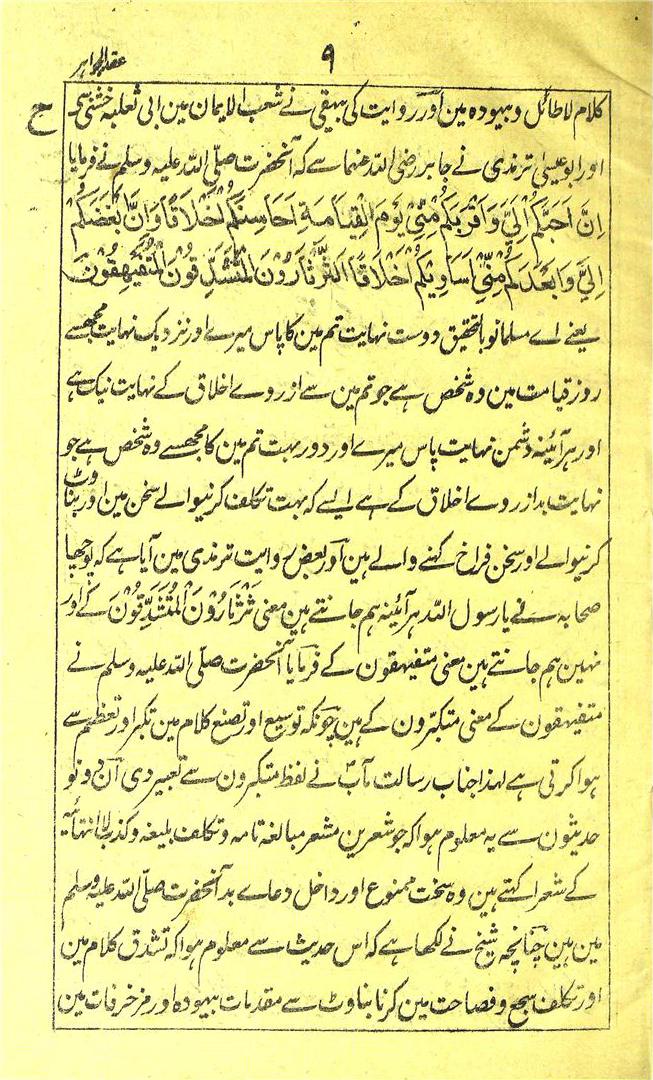 ۹
عقد الجواہر
کلام لاطائل و بیہودہ مین اور روایت کی بیہقی نے شعب الایمان مین ابی ثعلبہ خشنی سے
ح
اور ابو عیسیٰ ترمذی نے جابر رضی اللہ عنہما سے کہ آنحضرت صلی اللہ علیہ وسلم نے فرمایا
اِنَّ اَحَبَّکُمْ اِلَیَّ وَاَقْرَبَکُمْ مِنِّیْ یَوْمَ الْقِیَامَةِ اَحَاسِنُکُمْ اَخْلَاقًا وَاِنَّ اَبْغَضَکُمْ
اِلَیَّ وَاَبْعَدَکُمْ مِنِّیْ اَسَاوِیْکُمْ اَخْلَاقًا الثَّرْثَارُوْنَ الْمُتَشَدِّقُوْنَ الْمُتَفَیْهِقُوْنَ
یعنے اے مسلمانو بالتحقیق دوست نہایت تم مین کا پاس میرے اور نزدیک نہایت مجھسے
روز قیامت مین وہ شخص ہے جو تم مین سے از روے اخلاق کے نہایت نیک ہے
اور ہر آئینہ دشمن نہایت پاس میرے اور دور بہت تم مین کا مجھسے وہ شخص ہے جو
نہایت بد از روے اخلاق کے ہے ایسے کہ بہت تکلف کرنیوالے سخن مین اور بناوٹ
کرنیوالے اور سخن فراخ کہنے والے ہین اور بعض روایت ترمذی مین آیا ہے کہ پوچھا
صحابہ نے یا رسول اللہ ہر آئینہ ہم جانتے ہین معنی ثَرْثَارُوْنَ الْمُتَشَدِّقُوْنَ کے اور
نہین ہم جانتے ہین معنی متفیہقون کے فرمایا آنحضرت صلی اللہ علیہ وسلم نے
متفیہقون کے معنی متکبّرون کے ہین چونکہ توسیع اور تصنع کلام مین تکبر اور تعظم سے
ہوا کرتی ہے لہذا جناب رسالت مآب نے لفظ متکبرون سے تعبیر دی ان دونو
حدیثون سے یہ معلوم ہوا کہ جو شعرین مشعر مبالغہ تامہ و تکلف بلیغہ و کذب لا انتہائیہ
کے شعرا کہتے ہین وہ سخت ممنوع اور داخل دعاے بد آنحضرت صلی اللہ علیہ وسلم
مین ہین چنانچہ شیخ نے لکھا ہے کہ اس حدیث سے معلوم ہوا کہ تشدق کلام مین
اور تکلف سجع و فصاحت مین کرنا بناوٹ سے مقدمات بیہودہ اور مزخرفات مین